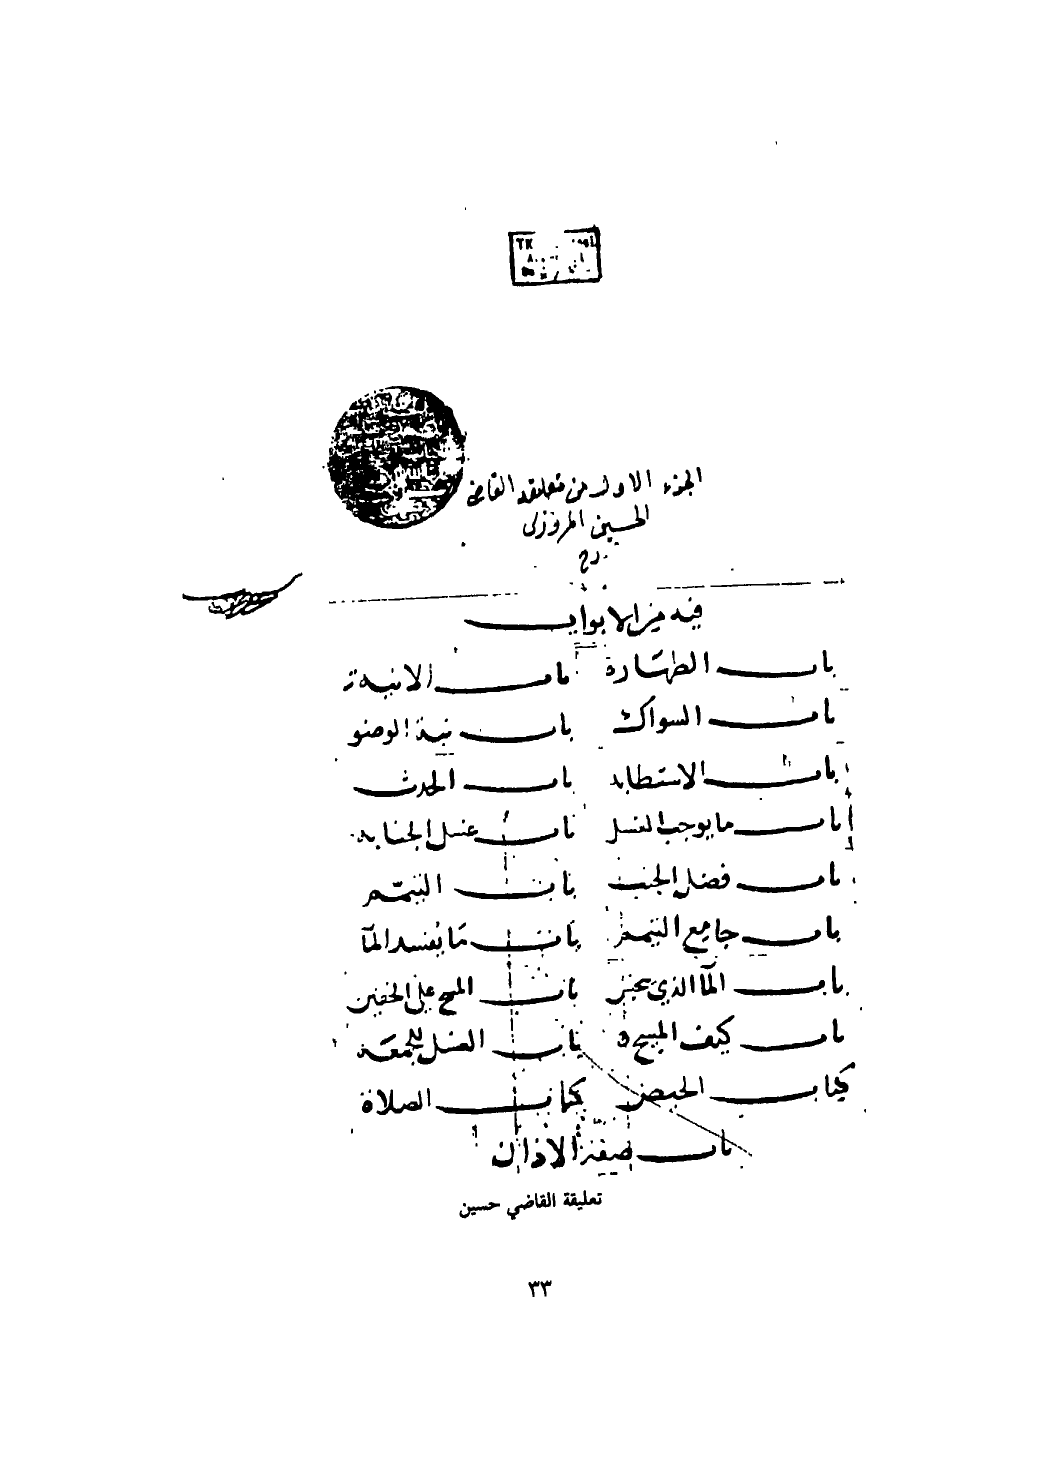 TK
الجزء الاول من تعليقة القاضي
الحسين المروزى
رح
فيه من الابواب
باب الطهارة باب الانية
باب السواك باب نية الوضو
باب الاستطابه باب الحدث
باب ما يوجب الغسل باب غسل الجنابه
باب فضل الجنب باب التيمم
باب جامع التيمم باب ما يفسد المآ
باب المآ الذي باب المسح على الخفين
باب كيف المسح باب الغسل للجمعة
كتاب الحيض كتاب الصلاة
باب صفة الاذان
تعليقة القاضي حسين
٣٣